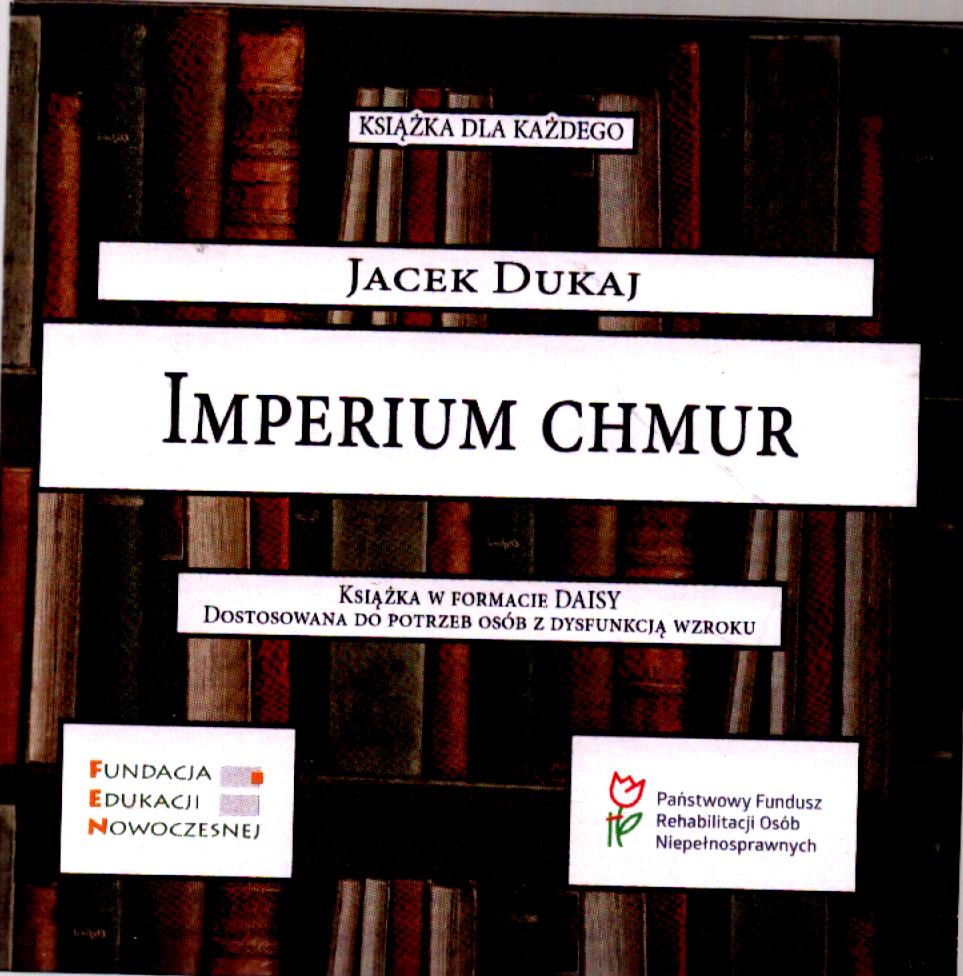 KSIĄŻKA DLA KAŻDEGO
JACEK DUKAJ
IMPERIUM CHMUR
KSIĄŻKA W FORMACIE DAISY
DOSTOSOWANA DO POTRZEB OSÓB Z DYSFUNKCJĄ WZROKU
FUNDACJA
EDUKACJI
NOWOCZESNEJ
Państwowy Fundusz
Rehabilitacji Osób
Niepełnosprawnych